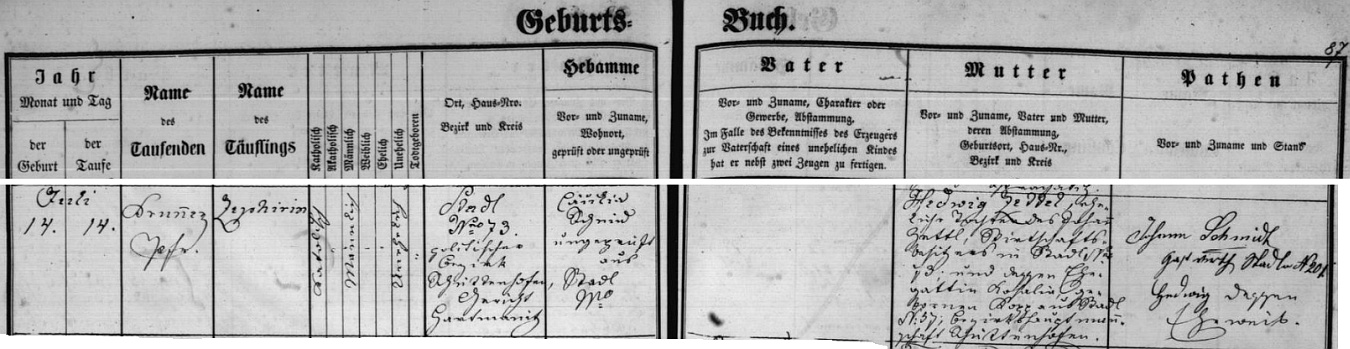 Geburts-
Buch.
87
Jahr
Monat und Tag
der Geburt
der Taufe
Name
des
Taufenden
Name
des
Täuflings
Katholisch
Akatholisch
Männlich
Weiblich
Ehelich
Unehelich
Todtgeboren
Ort, Haus-Nro.
Bezirk und Kreis
Hebamme
Vor- und Zuname,
Wohnort,
geprüft oder ungeprüft
Vater
Vor- und Zuname, Charakter oder
Gewerbe, Abstammung,
Im Falle des Bekenntnisses des Erzeugers
zur Vaterschaft eines unehelichen Kindes
hat er nebst zwei Zeugen zu fertigen.
Mutter
Vor- und Zuname, Vater und Mutter,
deren Abstammung,
Geburtsort, Haus-Nr.,
Bezirk und Kreis
Pathen
Vor- und Zuname und Stand
Juli
14. 14.
Brunner
Pfr.
Zephirin
Katholisch
Männlich
Unehelich
Stadl
Nro 73.
politischer
Bezirk
Schüttenhofen,
Gericht
Hartmanitz
Cäcilia
Schmid
ungeprüft
aus
Stadl
Hedwig, ehe-
liche Tochter des Johann
Zettl, Wirtschafts-
besitzers in Stadl
und dessen Ehe-
gattin Rosalia ge-
bornen Kopp aus Stadl
N. 57, Bezirkshauptmann-
schaft Schüttenhofen.
Johann Schmidt
Gastwirth Stadln N 20
Hedwig dessen
Eheweib.